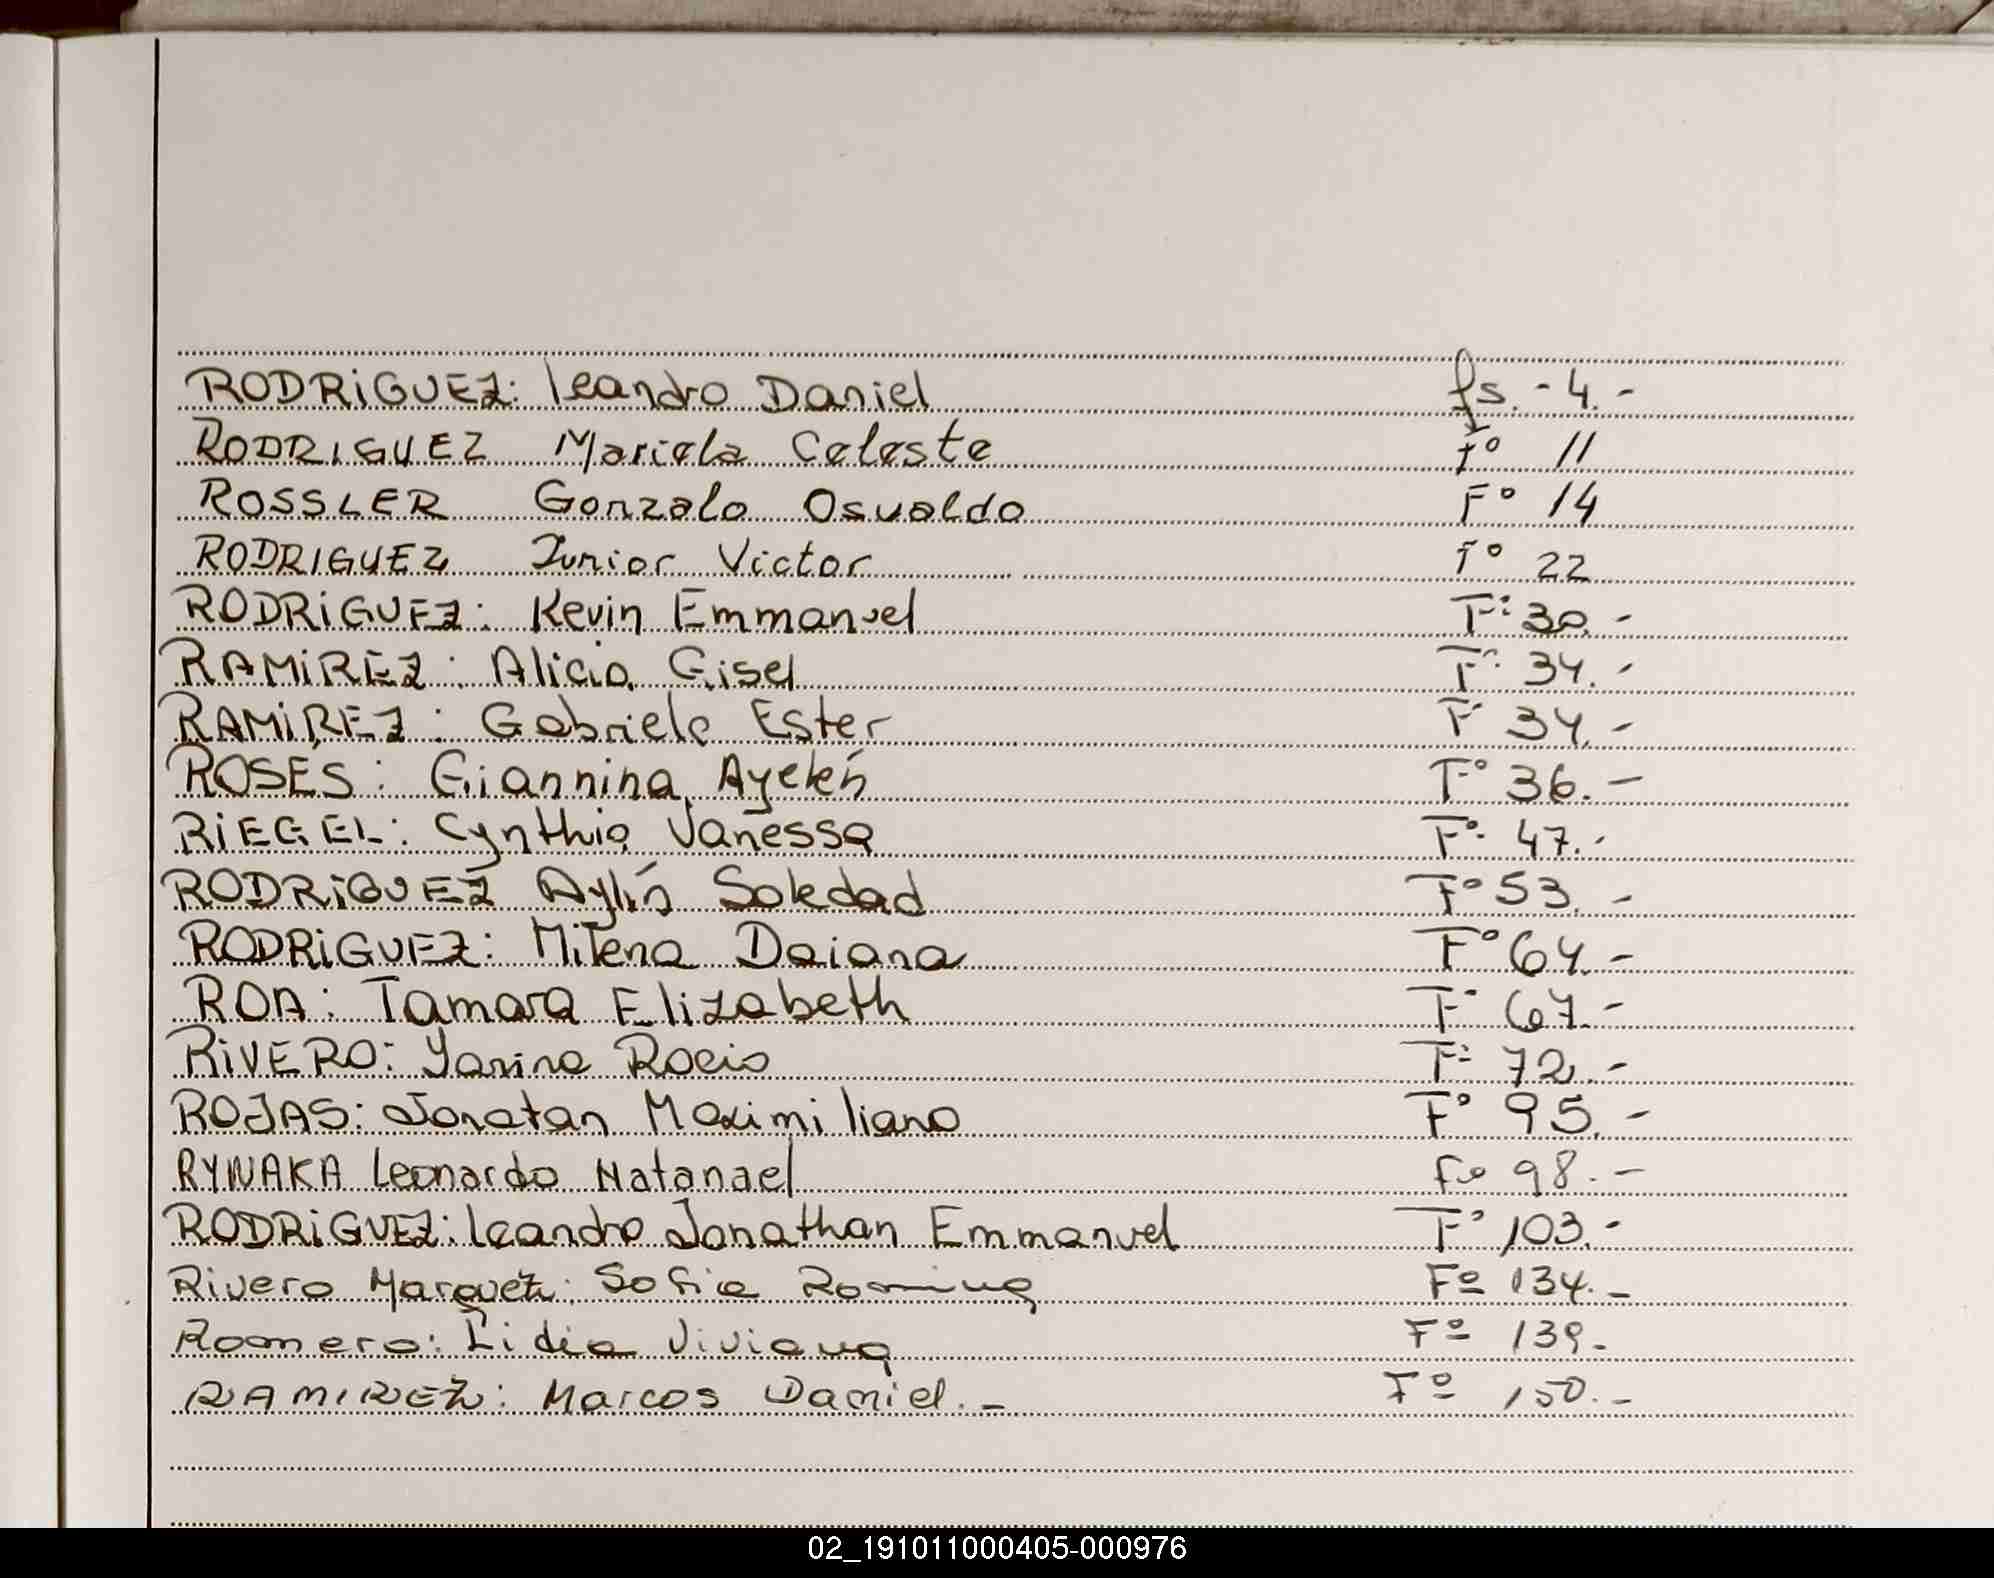 RODRiGUEZ: leandro Daniel fs. - 4. -
RODRIGUEZ Mariela Celeste Fº 11
ROSSLER Gonzalo Osvaldo Fº 14
RODRIGUEZ Junior Victor Fº 22
RODRiGUEZ: Kevin Emmanuel Fº 30. -
RAMiREZ: Alicia Gisel Fº 34. -
RAMiREZ: Gabriela Ester Fº 34. -
ROSES: Giannina Ayelén Fº 36. -
RiEGEL: Cynthia Vanessa Fº 47. -
RODRiGUEZ Aylín Soledad Fº 53. -
RODRiGUEZ: Milena Daiana Fº 64. -
ROA: Tamara Elizabeth Fº 67. -
RiVERO: Yanina Rocio Fº 72. -
ROJAS: Jonatan Maximiliano Fº 95. -
RYNAKA Leonardo Natanael Fº 98. -
RODRiGUEZ: leandro Jonathan Emmanuel Fº 103. -
Rivero Marquez: Sofia Romina Fº 134. -
Romero: Lidia Viviana Fº 139. -
RAMIREZ: Marcos Daniel. - Fº 150. -
02_191011000405-000976